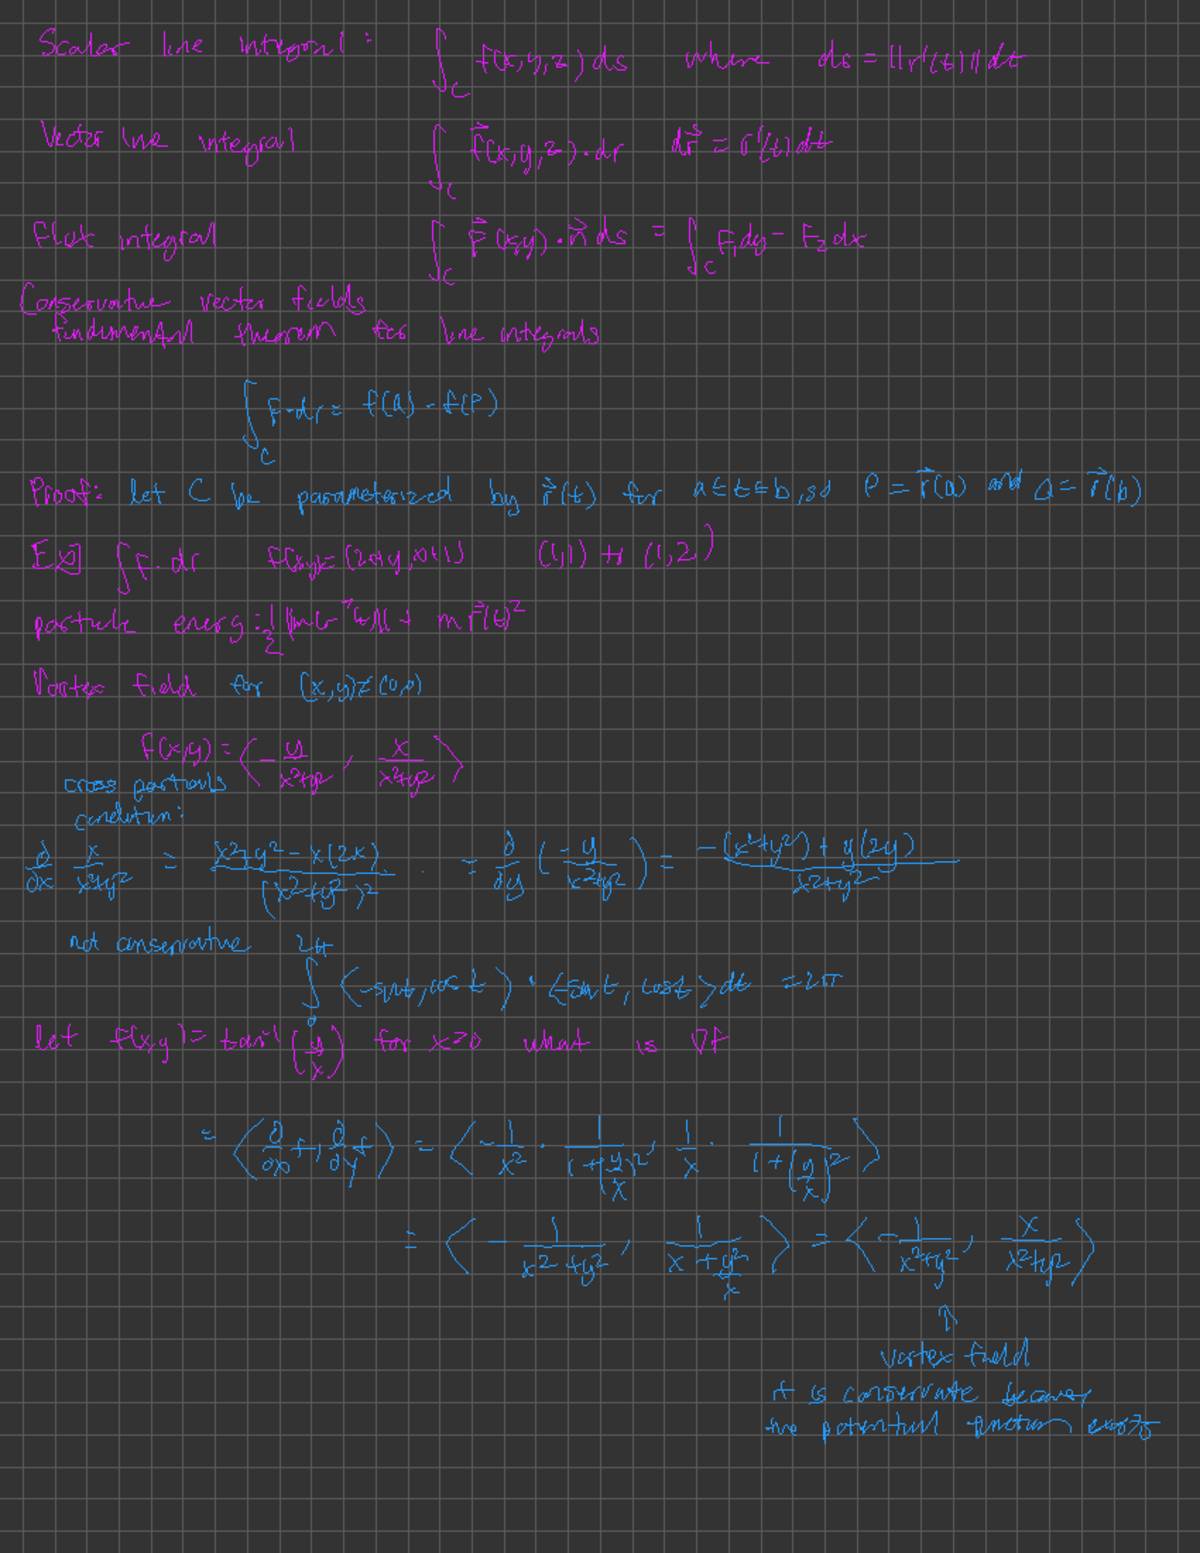 Scalar line integral: ∫_C f(x,y,z) ds where ds = ||r'(t)|| dt
Vector line integral ∫_C \vec{F}(x,y,z)·dr d\vec{r} = r'(t) dt
Flux integral ∫_C \vec{F}(x,y)·\vec{n} ds = ∫_C F_1 dy - F_2 dx
Conservative vector fields
fundamental theorem for line integrals
∫_C F·dr = f(Q) - f(P)
Proof: let C be parameterized by \vec{r}(t) for a≤t≤b, so P = \vec{r}(a) and Q = \vec{r}(b)
Ex] ∫F·dr (1,1) to (1,2)
particle energy
Vortex field for (x,y)≠(0,0)
f(x,y) = ⟨-y/(x²+y²), x/(x²+y²)⟩
cross partials
condition:
∂/∂x x/(x²+y²) = (x²+y²-x(2x))/(x²+y²)² = ∂/∂y (-y/(x²+y²)) = (-(x²+y²)+y(2y))/(x²+y²)
not conservative ∫_0^{2π} ⟨-sint, cos t⟩·⟨-sin t, cost⟩dt = 2π
let f(x,y) = tan⁻¹(y/x) for x>0 what is ∇f
= ⟨∂/∂x f, ∂/∂y f⟩ = ⟨-1/x² · 1/(1+(y/x)²), 1/x · 1/(1+(y/x)²)⟩
= ⟨-1/(x²+y²), 1/(x+y²/x)⟩ = ⟨-1/(x²+y²), x/(x²+y²)⟩
↑
vortex field
it is conservate because
the potential function exists